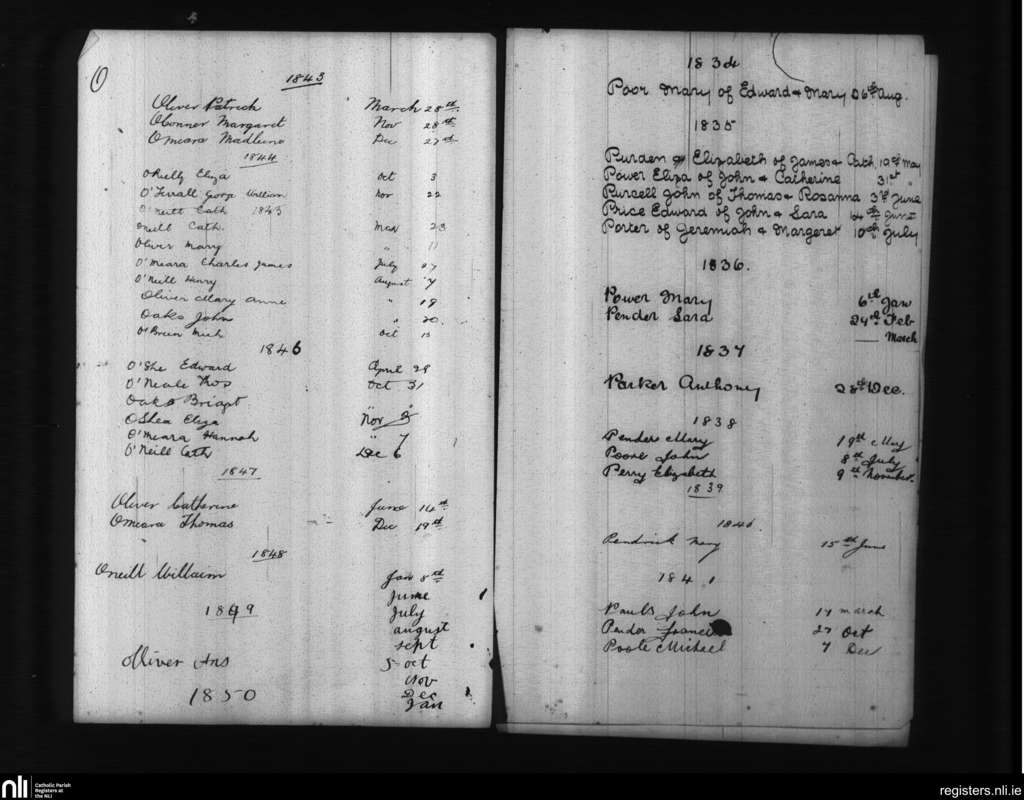 O
1843
Oliver Patrick March 28th.
OConner Margaret Nov 28th
Omeara Madlene Dec 27th
1844
OReilly Eliza Oct 3
O'Ferrall George William Nov 22
O'neill Cath 1845
Oneill Cath. May 23
Oliver Mary " 11
O'Meara Charles James July 27
O'Neill Henry August 7
Oliver Mary Anne " 18
Oaks John " 20.
O'Brien Mich Oct 13
1846
O'She Edward April 28
O'Neale Thos Oct 31
Oaks Bridgt. " "
OShea Eliza Nov 3
O'Meara Hannah " 7
O'Neill Cath Dec 6
1847
Oliver Catherine June 14th
Omeara Thomas Dec 19th
1848
Oneill Willaim Jan 8th
June
1849 July
august
sept
Olliver Ans 5 oct
Nov
1850 Dec
Jan
1834
Poor Mary of Edward & Mary 26th Aug.
1835
Purden Elizabeth of James & Cath. 19th May
Power Eliza of John & Catherine 31st "
Purcell John of Thomas & Rosanna 3rd June
Price Edward of John & Sara 14th June
Porter of Jeremiah & Margeret 10th July
1836.
Power Mary 6th Jan
Pender Sara 24th Feb
— March
1837
Parker Anthony 28th Dec.
1838
Pender Mary 19th May
Poore John 8th July
Perry Elizabeth 9th November.
1839
1840.
Pendrick Mary 15th June
1841
Pauls John 17 march
Pender Francis 27 Oct
Poole Michael 7 Dec
nli Catholic Parish
Registers at
the NLI
registers.nli.ie